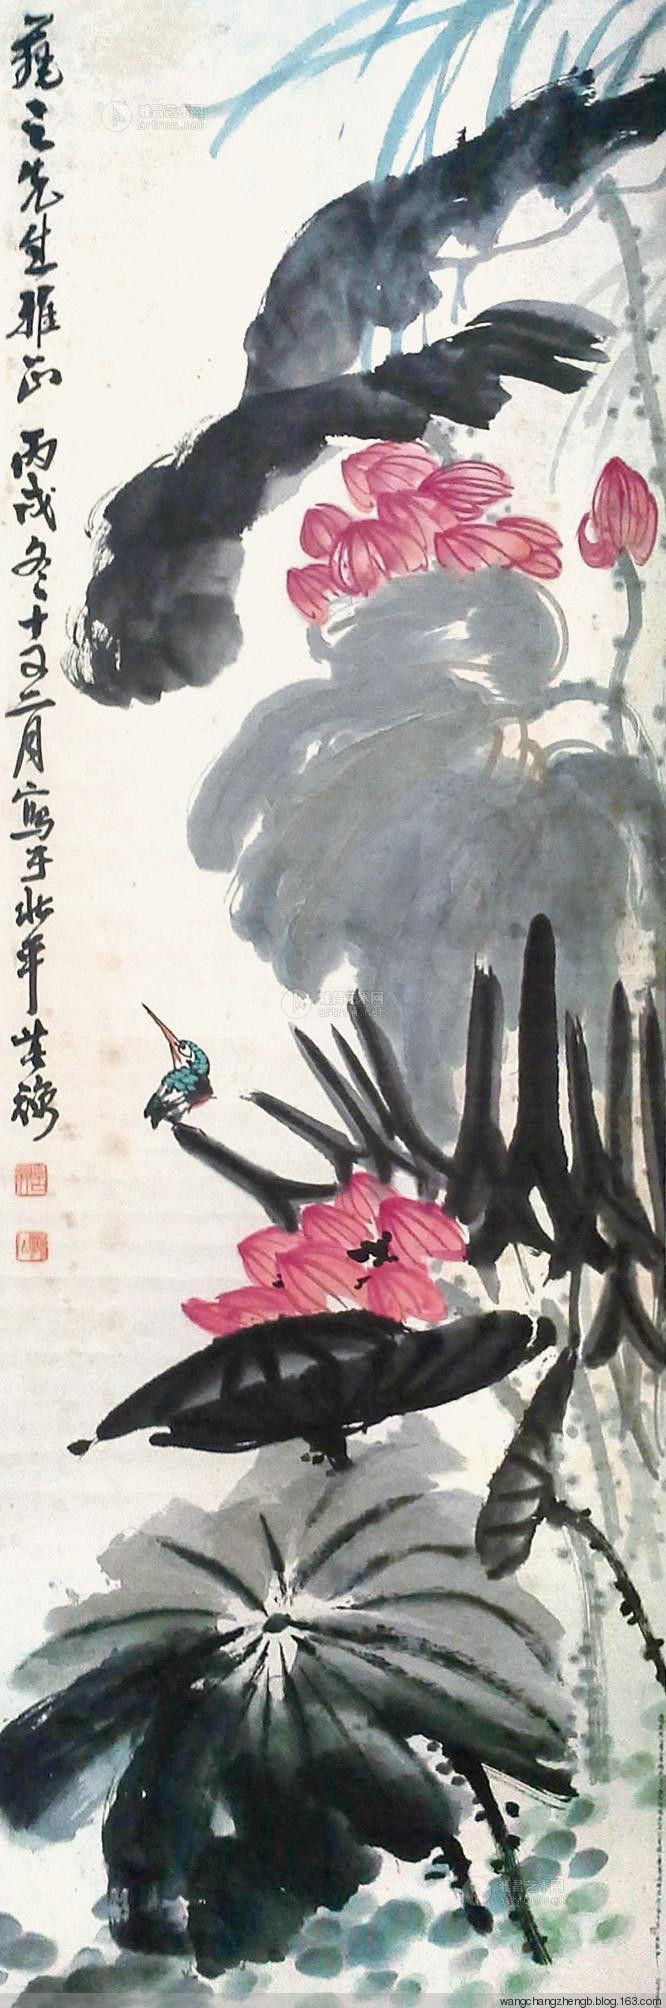 之先生雅正 丙戌冬十又二月寫于北平 苦禪
雅昌艺术网
artron.net
雅昌艺术网
artron.net
雅昌艺术网
artron.net
wangchangzhengb.blog.163.com